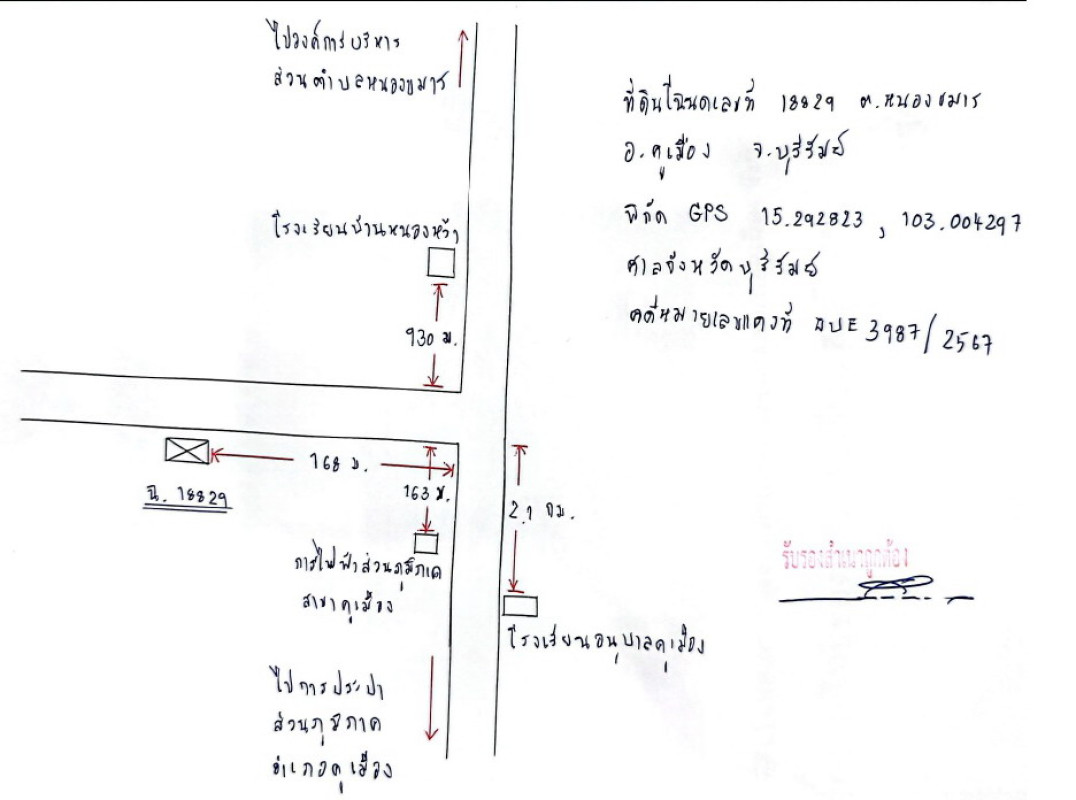 ไปองค์การบริหาร
ส่วนตำบลหนองขมาร
ที่ดินโฉนดเลขที่ 18829 ต.หนองขมาร
อ.คูเมือง จ.บุรีรัมย์
พิกัด GPS 15.292823 , 103.004297
ศาลจังหวัดบุรีรัมย์
คดีหมายเลขแดงที่ ผบE 3987/2567
โรงเรียนบ้านหนองหว้า
930 ม.
168 ม.
163 ม.
2.1 กม.
ฉ. 18829
การไฟฟ้าส่วนภูมิภาค
สาขาคูเมือง
รับรองสำเนาถูกต้อง
โรงเรียนอนุบาลคูเมือง
ไปการประปา
ส่วนภูมิภาค
อำเภอคูเมือง